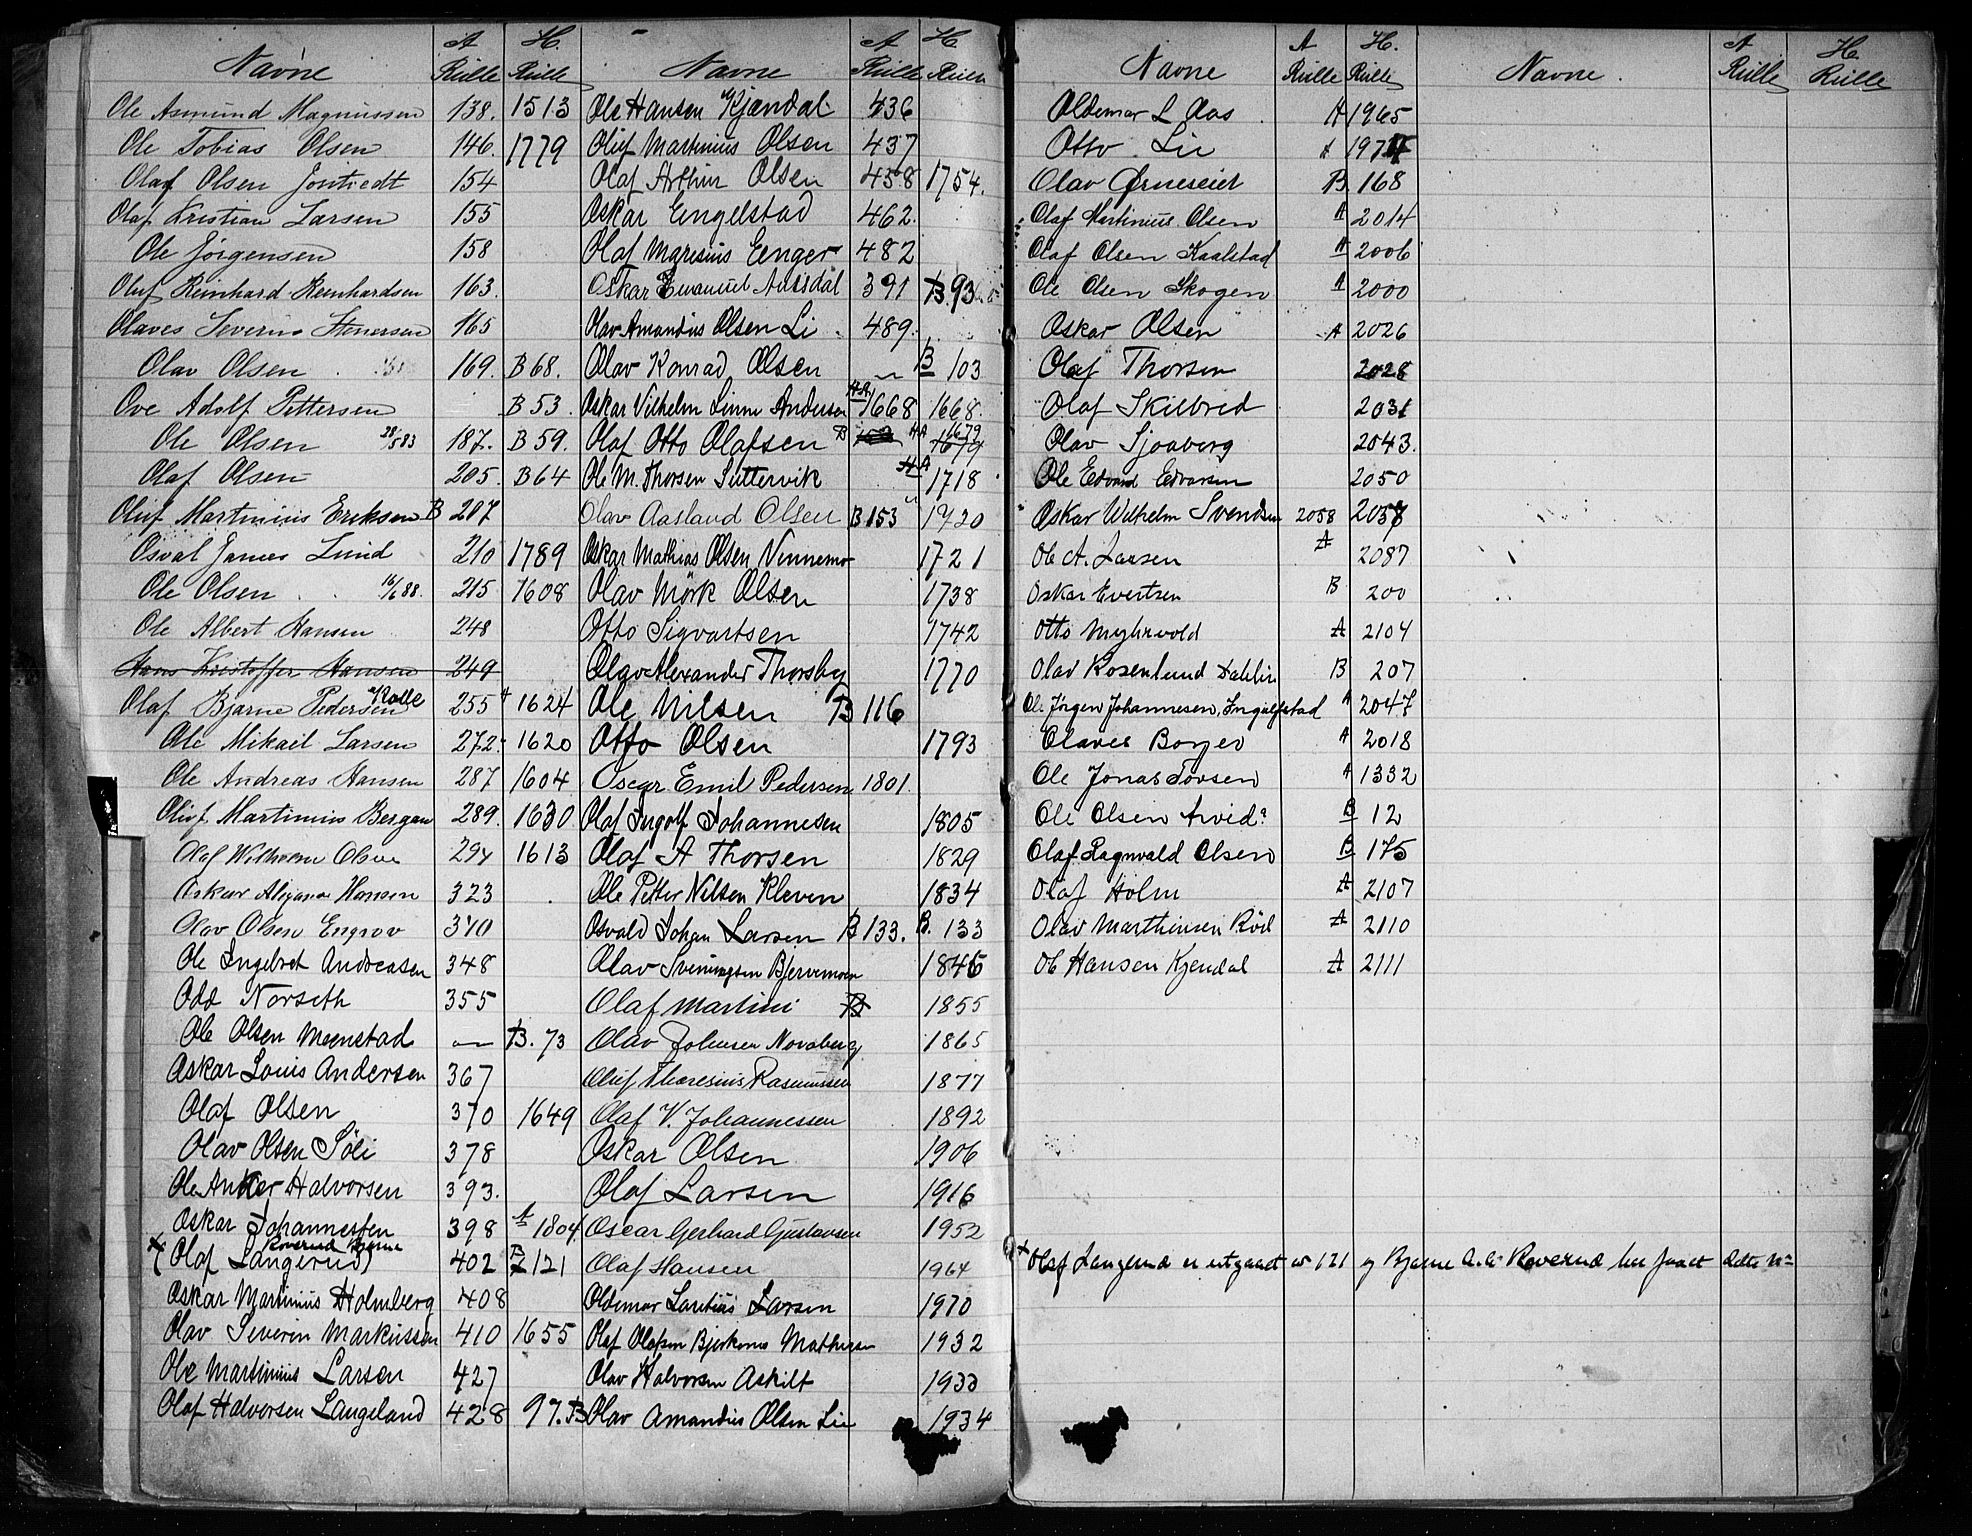 Navne A Rulle H. Rulle
Ole Asmund Magnussen 138. 1513
Ole Tobias Olsen 146. 1779
Olaf Olsen 154
Olaf Kristian Larsen 155
Ole Jørgensen 158
Oluf Reinhard Reinhardsen 163.
Olaves Severin 165
Olav Olsen 169. B 68.
Ove Adolf Pettersen B 53.
Ole Olsen 28/5 83 187. B 59.
Olaf Olsen 205. B 64
Oluf Martinius Eriksen B 207
Osval James Lund 210 1789
Ole Olsen 16/6 88. 215 1608
Ole Albert Hansen 248
Hans Kristoffer Hansen 249
Olaf Bjarne Pedersen 255 1624
Ole Mikail Larsen 272 1620
Ole Andreas Hansen 287 1604
Oluf Martinius Bergan 289. 1630
Olaf Wilhelm Olsen 294 1613
Oskar Hansen 323
Olav Olsen Engrav 340
Ole Ingebret Andreasen 348
Odd Norseth 355
Ole Olsen Meenstad — B. 73
Oskar Louis Andersen 367
Olaf Olsen 370 1649
Olav Olsen Söli 378
Ole Anker Halvorsen 393.
Oskar Johannessen 398 A 1804
Roverud Bjarne
x (Olaf Langerud) 402 B 121
Oskar Martinius Holmberg 408
Olav Severin Markussen 410 1655
Ole Martinius Larsen 427
Olaf Halvorsen Langeland 428 97. B
Navne A Rulle H Rulle
Ole Hansen Kjændal 436
Oluf Martinius Olsen 437
Olaf Arthur Olsen 438 1754.
Oskar Engelstad 462.
Olaf Maresius Eenger 482
Oskar Emanuel 391 B. 93
Olav Amandus Olsen Li 489.
Olav Konrad Olsen — B 103
Oskar Vilhelm Linne Andersen 1668 1668.
Olaf Otto Olafsen B A 1679
Ole M. Thorsen Suttervik A 1718
Olav Aasland Olsen B 153 " 1720
Oskar Mathias Olsen Vennemo 1721
Olav Mörk Olsen 1738
Otto Sigvartsen 1742
Olav Alexander Thorsby 1770
Ole Nilsen B 116
Otto Olsen 1793
Oscar Emil Pedersen 1801.
Olaf Ingolf Johannesen 1805
Olaf A Thorsen 1829
Ole Petter Nilsen Kleven 1834
Osvald Johan Larsen B 133. B. 133
Olav Sveningsen Bjervemoen 1846
Olaf Martini B 1855
Olav Johnsen Novaberg 1865
Oluf Theresius Rasmussen 1877
Olaf V. Johannessen 1892
Oskar Olsen 1906
Olaf Larsen 1916
Oscar Gerhard Gustavsen 1952
Olaf Hansen 1964
Oldemar Laretius Larsen 1970
Olaf Olafsen Bjerknes Mathisen 1932
Olav Halvorsen Askilt 1933
Olav Amandus Olsen Lie 1934
Navne A Rulle H. Rulle
Oldemar L Aas A 1965
Otto Lie A 1974
Olav Ørneseier B 168
Olaf Martinius Olsen A 2014
Olaf Olsen Kaalstad A 2006
Ole Olsen Skogen A 2000
Oskar Olsen A 2026
Olaf Thorsen 2028
Olaf Skilbred 2031
Olav Sjoaberg 2043.
Ole Edvard Edvarsen 2050
Oskar Wilhelm Svendsen 2058 2058
Ole A. Larsen A 2087
Oskar Evertsen B 200
Otto Myhrvold A 2104
Olav Rosenlund Dahlin B 207
Ole Jörgen Johannesen, Ingulfstad A 2047
Olaves Borger A 2018
Ole Jonas Torsen A 1332
Ole Olsen Arvid? B 12
Olaf Ragnvald Olsen B 175
Olaf Holm A 2107
Olav Marthinsen Röd A 2110
Ole Hansen Kjendal A 2111
x Olaf Langerud er utgaaet av 121 og Bjarne Roverud har faaet dette nr
Navne. A Rulle H Rulle